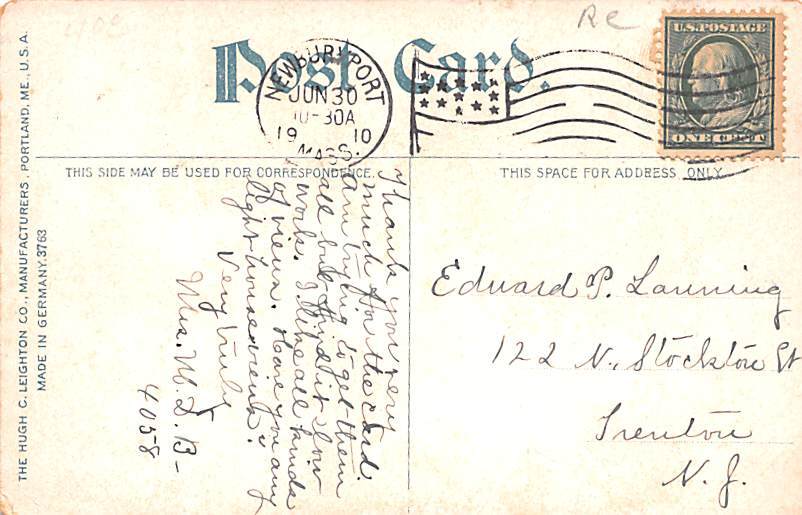 Re
Post Card.
U.S. POSTAGE
ONE CENT
NEWBURYPORT
JUN 30
10-30A
19 10
MASS.
THIS SIDE MAY BE USED FOR CORRESPONDENCE.
THIS SPACE FOR ADDRESS ONLY.
THE HUGH C. LEIGHTON CO., MANUFACTURERS, PORTLAND, ME., U.S.A.
MADE IN GERMANY. 3763
Thank you very
much for the card.
am trying to get them
all but find it slow
work. I like all kinds
of views. Have you any
light house views?
Very truly
Mrs. M. L. B-
4058
Edward P. Lanning
122 N. Stockton St
Trenton
N. J.